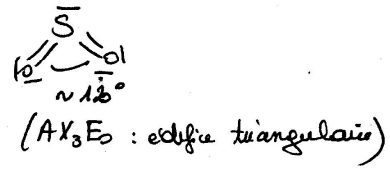 S
O O
~ 120°
(AX₃E₀ : édifice triangulaire)